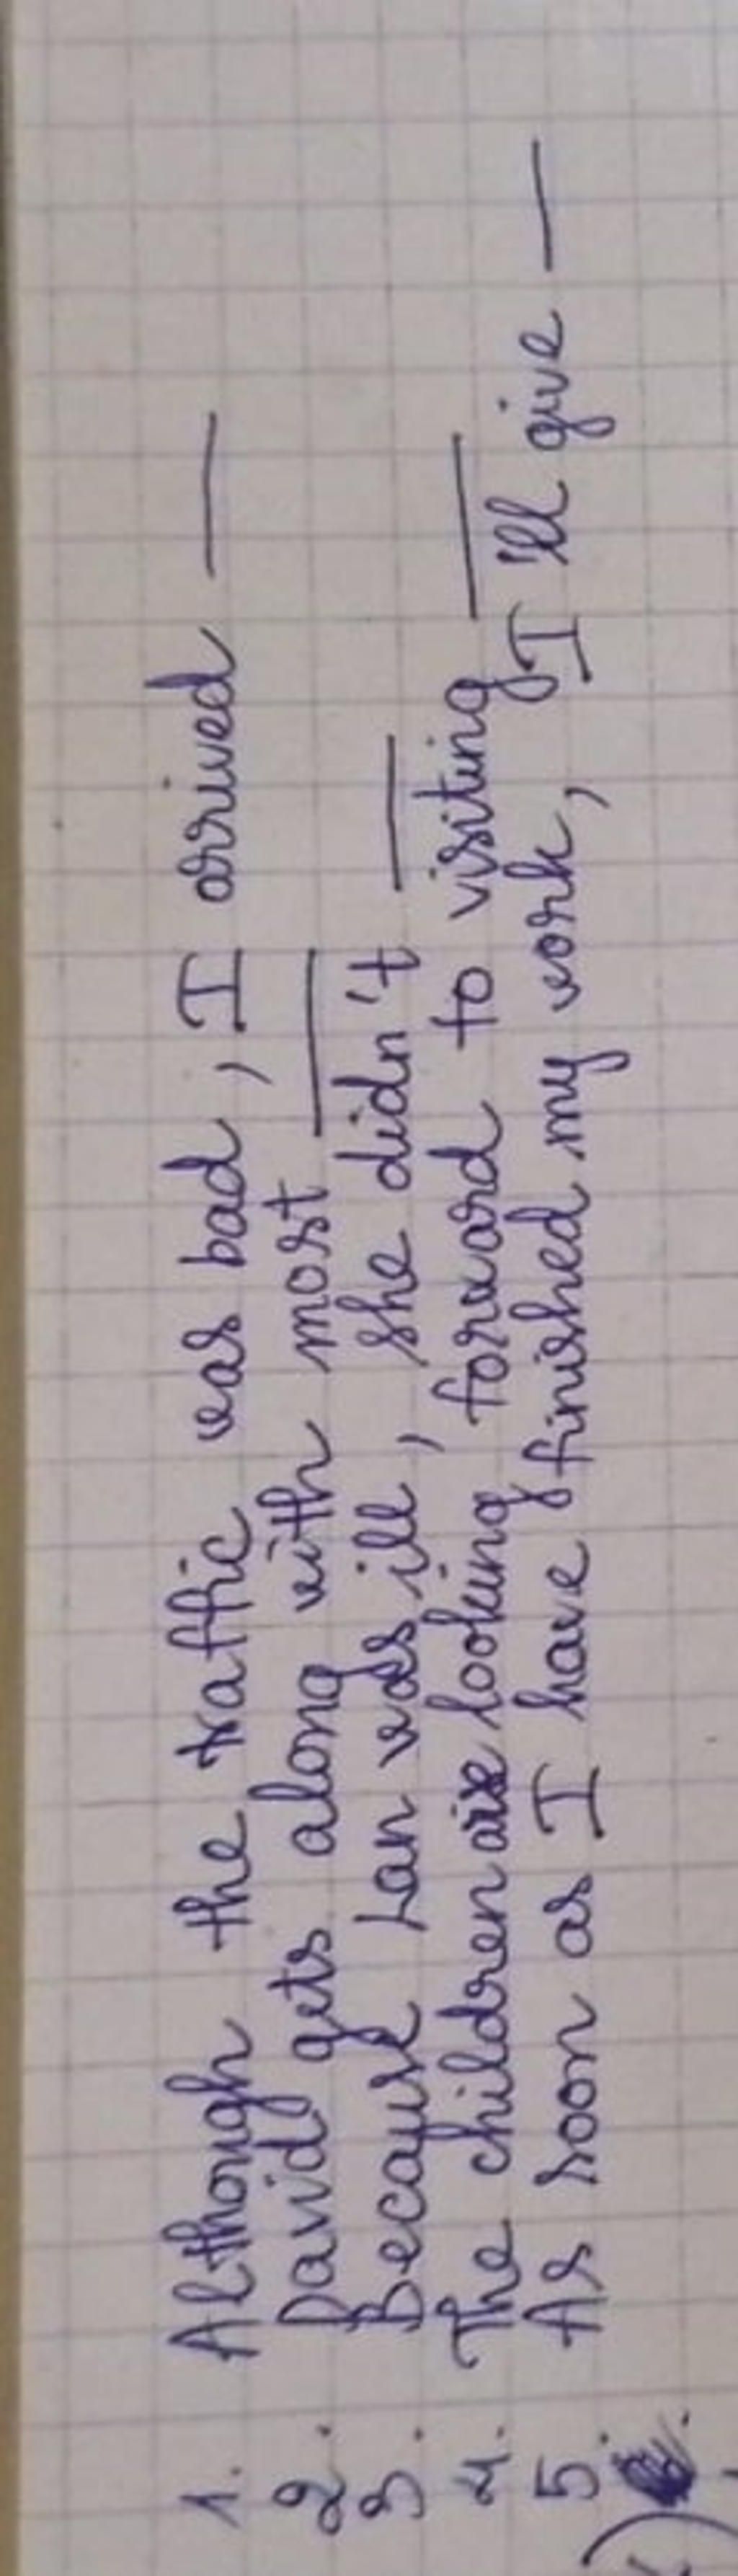 1. Although the traffic was bad, I arrived —
2. David gets along with most —
3. Because Lan was ill, she didn't —
4. The children are looking forward to visiting —
5. As soon as I have finished my work, I'll give —